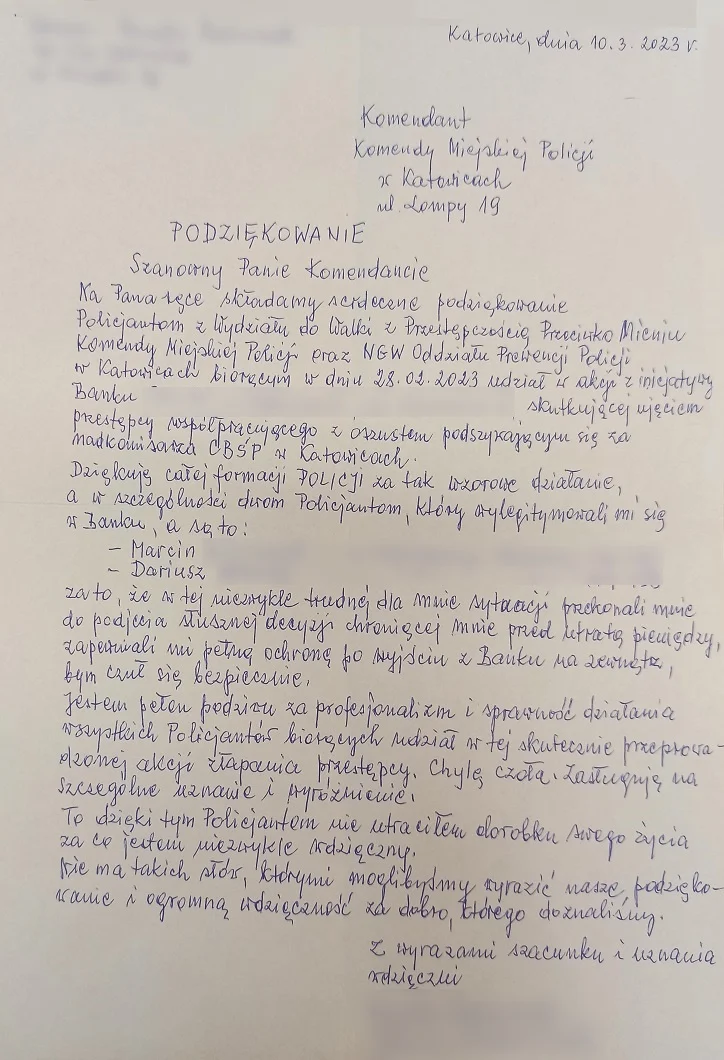 Katowice, dnia 10.3.2023 r.
Komendant
Komendy Miejskiej Policji
w Katowicach
ul. Lompy 19
PODZIĘKOWANIE
Szanowny Panie Komendancie
Na Pana ręce składamy serdeczne podziękowanie
Policjantom z Wydziału do Walki z Przestępczością Przeciwko Mieniu
Komendy Miejskiej Policji oraz NGW Oddziału Prewencji Policji
w Katowicach biorącym w dniu 28.02.2023 udział w akcji z inicjatywy
Banku
skutkującej ujęciem
przestępcy współpracującego z oszustem podszywającym się za
nadkomisarza CBŚP w Katowicach.
Dziękuję całej formacji POLICJI za tak wzorowe działanie,
a w szczególności dwom Policjantom, który wylegitymowali mi się
w Banku, a są to:
– Marcin
– Dariusz
za to, że w tej niezwykle trudnej dla mnie sytuacji przekonali mnie
do podjęcia słusznej decyzji chroniącej mnie przed utratą pieniędzy,
zapewniali mi pełną ochronę po wyjściu z Banku na zewnątrz,
bym czuł się bezpiecznie.
Jestem pełen podziwu za profesjonalizm i sprawność działania
wszystkich Policjantów biorących udział w tej skutecznie przeprowa-
dzonej akcji złapania przestępcy. Chylę czoła. Zasługują na
szczególne uznanie i wyróżnienie.
To dzięki tym Policjantom nie utraciłem dorobku swego życia
za co jestem niezwykle wdzięczny.
Nie ma takich słów, którymi moglibyśmy wyrazić nasze podzięko-
wanie i ogromną wdzięczność za dobro, którego doznaliśmy.
Z wyrazami szacunku i uznania
wdzięczni